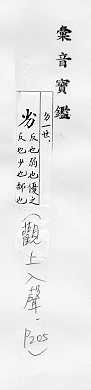 彙音寶鑑
夕一世、
劣 反也弱也優之
反也少也鄙也
(觀上入聲·P205)